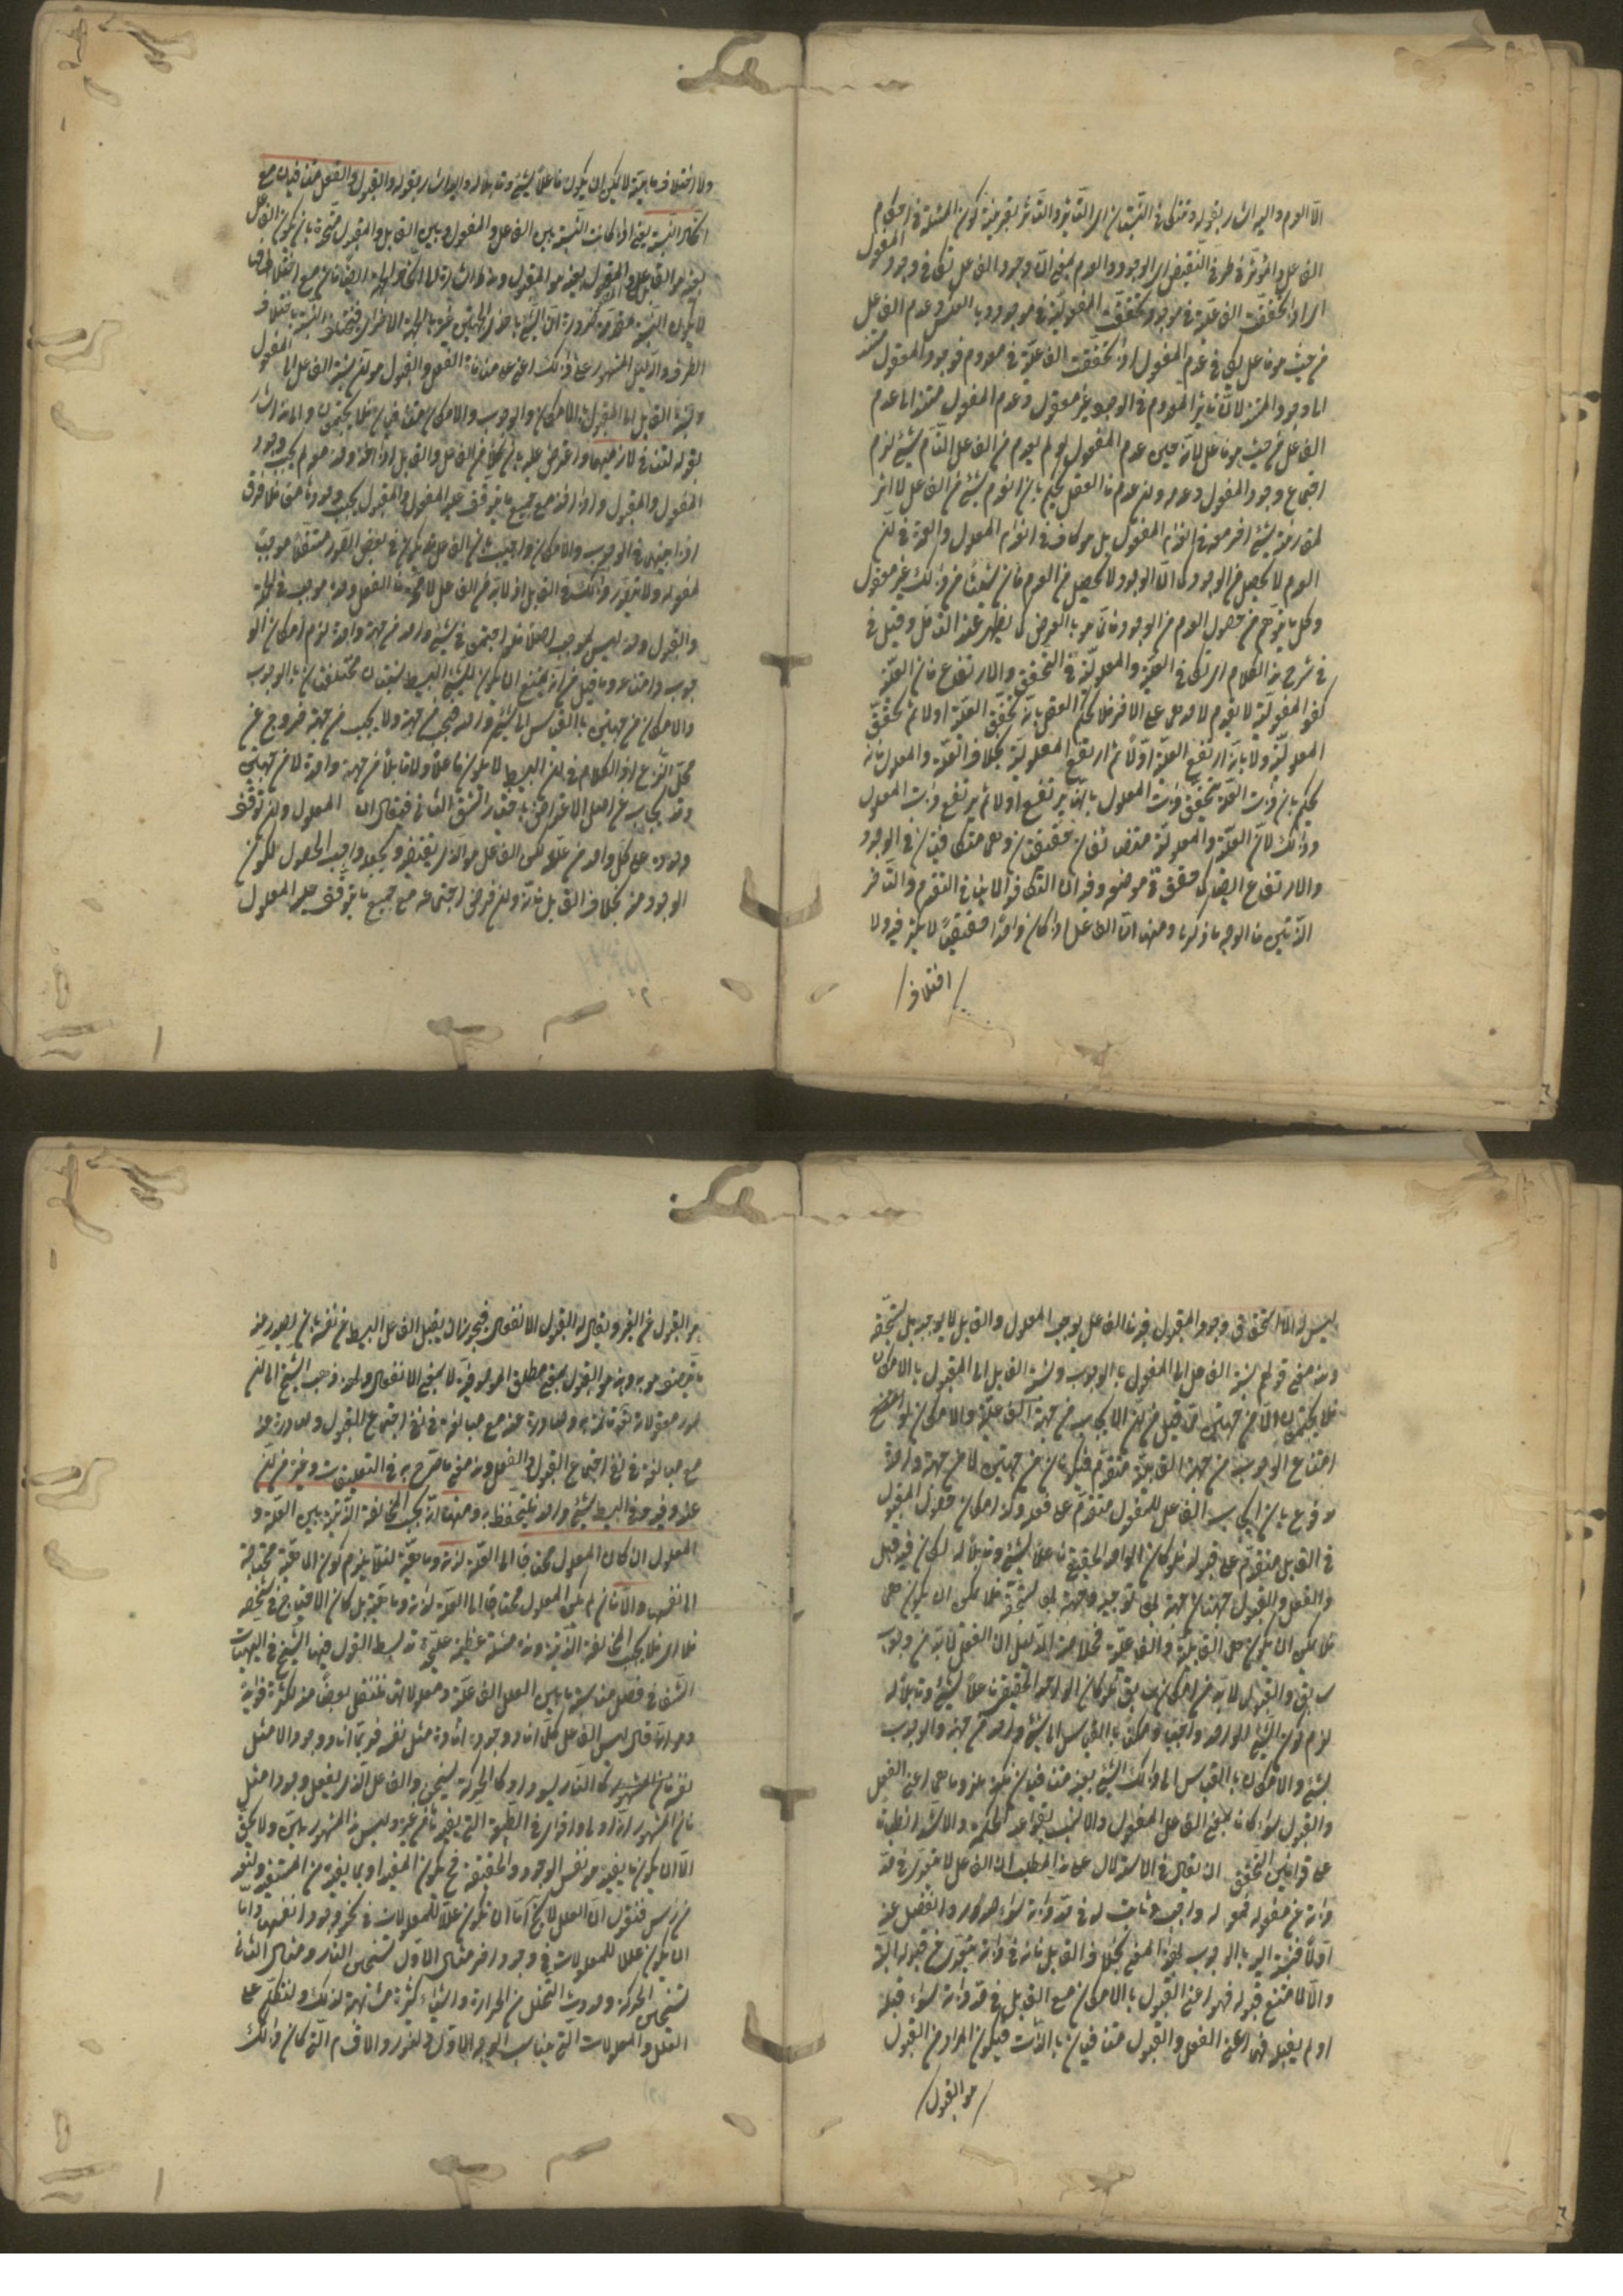 الا العدم واليه اشار بقوله وتتكافى النسبتان اى التأثير والتأثر بقرينة كون المسئلة فى احكام
الفاعل والمؤثر فى طرفى النقيض اى الوجود والعدم بمعنى ان وجود الفاعل تكافى وجود المفعول
اى اذا تحققت الفاعلية فى موجود تحققت المفعولية فى موجود وبالعكس وعدم الفاعل
من حيث هو فاعل يكافى عدم المفعول اى اذا تحققت الفاعلية فى معدوم فوجود المفعول يستند
الى وجود لان تأثير المعدوم فى الوجود غير معقول وعدم المفعول مستند الى عدم
الفاعل من حيث هو فاعل لانه حين عدم المفعول لو لم يعدم من الفاعل التام شىء لزم
اجتماع وجود المفعول وعدمه وان عدم فالعقل يحكم بان انعدام شىء من الفاعل لا اثر
لمقارنة شىء آخر معه فى انعدام المفعول بل هو كاف فى انعدام المعلول والعمدة فى ان
العدم لا يحصل من الوجود كما ان الوجود لا يحصل من العدم فان شيئا من ذلك غير معقول
وكل ما يتوهم من حصول العدم من الوجود فانما هو بالعرض كما يظهر عند التأمل وقيل فى
فى شرح هذا الكلام اى تكافى العلية والمعلولية فى التحقق والارتفاع فان العلية
كفو المفعولية لا يقدم لاحدهما على الآخر فلا يحكم العقل بانه تحقق العلية اولا ثم تحقق
المعلولية ولا بانه ارتفع العلية اولا ثم ارتفع المعلولية بخلاف العلة والمعلول فانه
يحكم بان ذات العلة تحقق ذات المعلول بانها يرتفع اولا ثم يرتفع ذات المعلول
وذلك لان العلية والمعلولية متضايفان حقيقتان وهما متكافيتان فى الوجود
والارتفاع ايضا كما حقق فى موضعه وفيه ان التكافؤ لا ينافى التقدم والتأخر
الذاتيين فالوجه ما ذكرنا ومنها ان الفاعل اذا كان واحدا حقيقيا لا تكثر فيه ولا
اختلاف
ولا اختلاف ماهية لا يمكن ان يكون فاعلا لشىء وقابلا له واليه اشار بقوله والقبول والفعل متنافيان مع
اتحاد النسبة يعنى اذا كانت النسبة بين الفاعل والمفعول وبين القابل والمقبول متحدة بان يكون الفاعل
بعينه هو القابل والمفعول بعينه هو المقبول
لا يكون النسبة متحدة ضرورة ان الشىء باحدى الجهتين غيره بالجهة الاخرى فيختلف النسبة باختلاف
الطرف والدليل المشهور على ذلك اعنى على منافاة الفعل والقبول هو ان نسبة الفاعل الى المفعول
ونسبة القابل الى المقبول بالامكان والوجوب والامكان متنافيان فلا يجتمعان والى هذا اشار
بقوله لتنافى لازميهما واعترض عليه بان كلا من الفاعل والقابل اذا اخذ وحده لم يجب وجود
المفعول والمقبول واذا اخذ مع جميع ما يتوقف عليه المفعول والمقبول يجب وجودهما معه فلا فرق
اذا بينهما فى الوجوب والامكان واجيب بان الفاعل قد يكون فى بعض الصور مستقلا موجبا
لمفعوله ولا يتصور ذلك فى القابل اذ لا بد من الفاعل لا محالة فالفعل وحده موجب فى الجملة
والقبول وحده ليس بموجب اصلا فلو اجتمعا فى شىء واحد من جهة واحدة لزم امكان الو
جوب وامتناعه وما قيل من انه يمتنع ان يكون للشىء البسيط نسبتان مختلفتان بالوجوب
والامكان من جهتين بالقياس الى شىء واحد يجب من جهة ولا يجب من جهة فخروج عن
محل النزاع اذ الكلام فى ان البسيط لا يكون فاعلا وقابلا من جهة واحدة لا من جهتين
وقد يجاب عن اصل الاعتراض باختيار الشق الثانى فيقال ان المعلول وان توقف
وجوده على كل واحد من علله لكن الفاعل هو الذى يقتضيه ويجعله واجب الحصول لكون
الوجود منه بخلاف القابل فانه وان فرض اجتماعه مع جميع ما يتوقف عليه المعلول
ليس له الا استحقاق وجود المقبول فيه فالفاعل يوجب المعلول والقابل لا يوجبه بل يستحقه
وهذا معنى قولهم نسبة الفاعل الى المفعول بالوجوب ونسبة القابل الى المقبول بالامكان
فلا يجتمعان الا من جهتين وما قيل من ان الايجاب من جهة الفاعلية والامكان لو اقتضى
امتناع الوجوب من جهة القابلية متقدم فيكونان من جهتين لا من جهة واحدة
مدفوع بان ايجاب الفاعل للمفعول متقدم على فعله وكذا امكان حصول المقبول
فى القابل متقدم على قبوله فلو كان الواحد الحقيقى فاعلا لشىء وقابلا له لكان فيه قبل
الفعل والقبول جهتان جهة بها توجبه وجهة بها تستحقه فلا يمكن ان يكون هى
فلا يمكن ان يكون هى القابلية والفاعلية فخلاصة الدليل ان الفعل لا بد له من وجوب
سابق والقبول لا بد له من امكان سابق فلو كان الواحد الحقيقى فاعلا لشىء وقابلا له
لزم كون الشىء الواحد واجبا وممكنا بالقياس الى شىء واحد من جهة والوجوب
لشىء والامكان بالقياس الى ذلك الشىء بعينه متنافيان فكذا ملزوماهما اعنى الفعل
والقبول سواء كان بمعنى الفاعل المفعول والانسب بقواعد الحكمة والاشد انطباقا
على قوانين التحقق ان يقال فى الاستدلال على هذا المطلب ان الفاعل لا يتعرى فى حد
ذاته عن مفعوله فهو له واجب وثابت له فى حد ذاته سواء صدر او انفصل عنه
اولا فنسبته اليه بالوجوب بهذا المعنى بخلاف القابل فانه فى ذاته يتعرى عن مقبوله البتة
والا لامتنع قبوله فهو اعنى القبول بالامكان مع القابل فى حد ذاته سواء قبله
او لم يقبله فهما اعنى الفعل والقبول متنافيان بالذات فيكون المراد من القبول
هو القبول
هو القبول عن الغير ويقال له القبول الانفعالى فيجوز ان يقبل الفاعل البسيط عن نفسه بان يصدر عنه
ما يتصف هو به وهذا هو القبول بمعنى مطلق الموصوفية لا بمعنى الانفعال ولهذا ذهب الشيخ الى ان
صور معقولاته تعالى قائمة به وصادرة عنه مع مبالغته فى نفى اجتماع القبول وصادرة عنه
مع مبالغته فى نفى اجتماع القبول والفعل وهذا معنى ما صرح به فى التعليقات وغيره من ان
عنه وفيه فى البسيط شىء واحد فليتحفظ به ومنها انه يجب المخالفة الذاتية بين العلة و
المعلول ان كان المعلول محتاجا الى العلة لذاته وماهيته لئلا يلزم كون الماهية محتاجة
الى نفسها والا فان لم يكن المعلول محتاجا الى العلة لذاته وماهيته بل كان الاحتياج فى تشخصه
فلا اى فلا يجب المخالفة الذاتية وهذه مسئلة عظيمة حكمية قد بسط القول فيها الشيخ فى الهيات
الشفا فى فصل مناسبة ما بين العلل الفاعلة ومعلولاتها فلننقل بعضا منه لكثرة فوائده
وهو انه قال ليس الفاعل كل ما افاد وجودا افاده مثل نفسه فربما افاد وجودا لا مثل
نفسه فان المشهور كالنار يسود او كالحركة يسخن والفاعل الذى يفعل وجودا مثل
فان المشهور انه اولى واقوى فى الطبيعة التى يفيدها من غيره وليس هذا المشهور ببين ولا بحق
الا ان يكون ما يفيده هو نفس الوجود والحقيقة فح يكون المفيد اولى بما يفيده من المستفيد ولنعد
من رأس فنقول ان العلل لا يخلو اما ان تكون عللا للمعلولات فى نحو وجود انفسها واما
ان يكون عللا للمعلولات فى وجود آخر مثال الاول تسخن النار ومثال الثانى
تسخين الحركة وحدوث التخلخل من الحرارة واشياء كثيرة مشابهة لذلك ولنتكلم على
العلل والمعلولات التى يناسب الوجه الاول ولنورد الاقسام التى كان ذلك